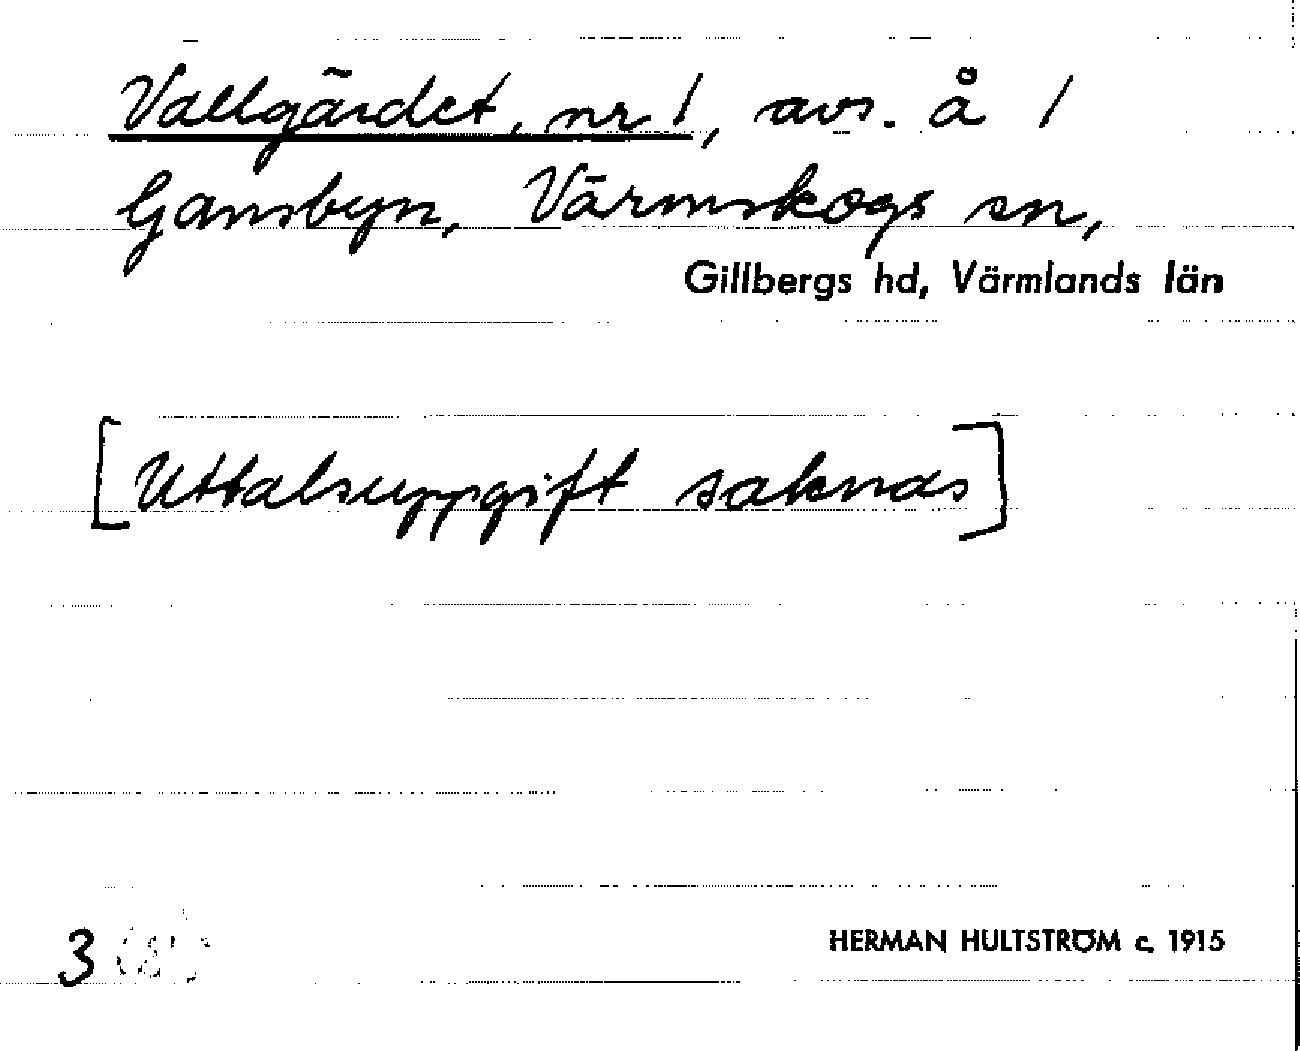 Vallgärdet, nr 1, avs. å 1
Gansbyn, Värmskogs sn,
Gillbergs hd, Värmlands län
[Uttalsuppgift saknas]
3
HERMAN HULTSTRÖM c. 1915